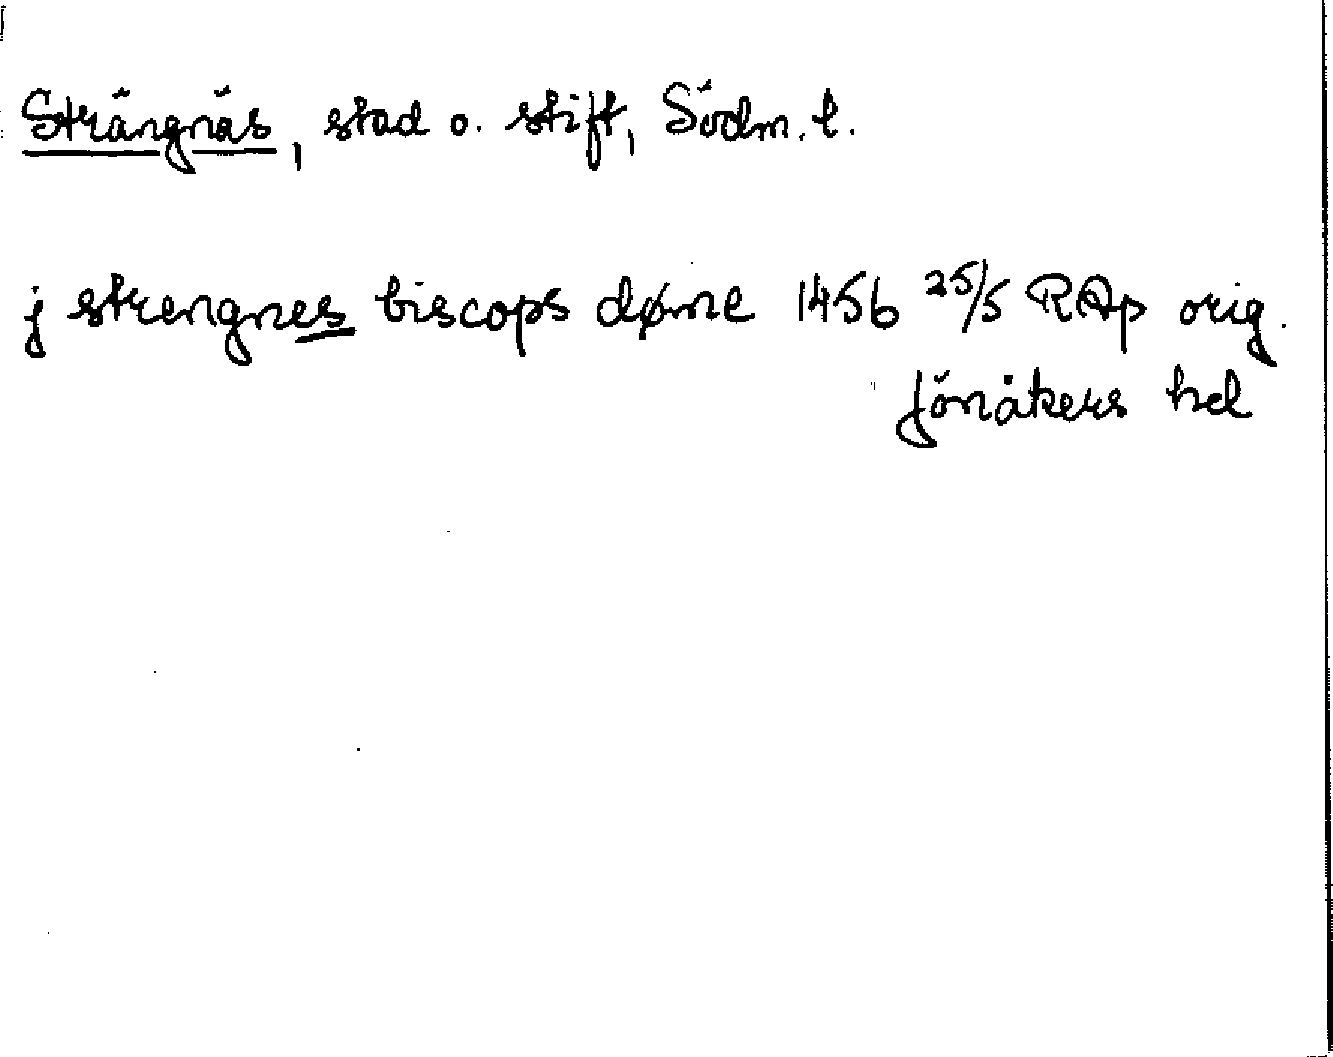 Strängnäs, stad o. stift, Södm. l.
j strengnes biscops døme 1456 25/5 RAp orig.
Jönåkers hd